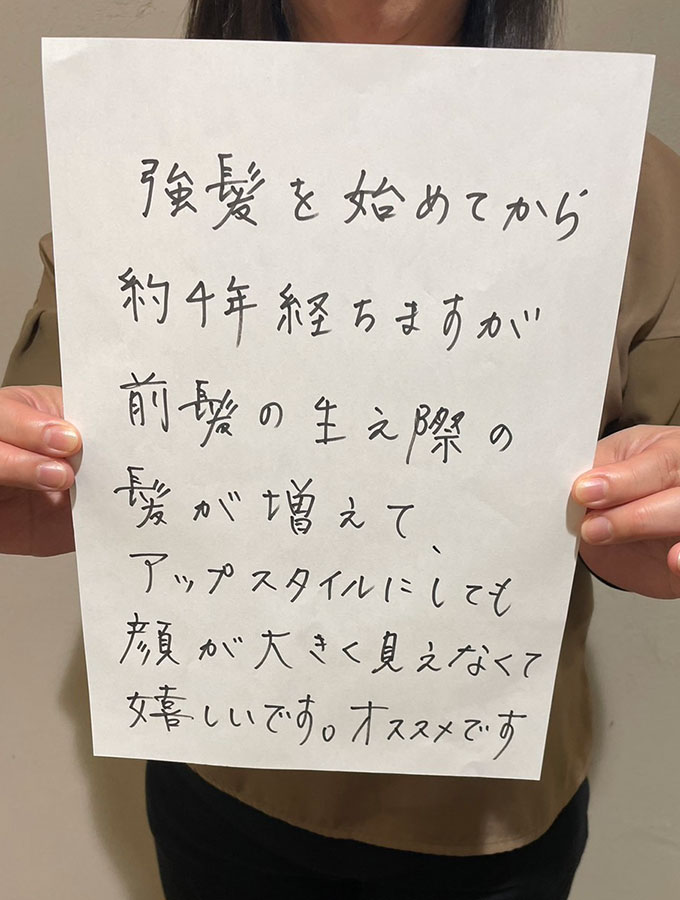 強髪を始めてから
約4年経ちますが
前髪の生え際の
髪が増えて、
アップスタイルにしても
顔が大きく見えなくて
嬉しいです。オススメです